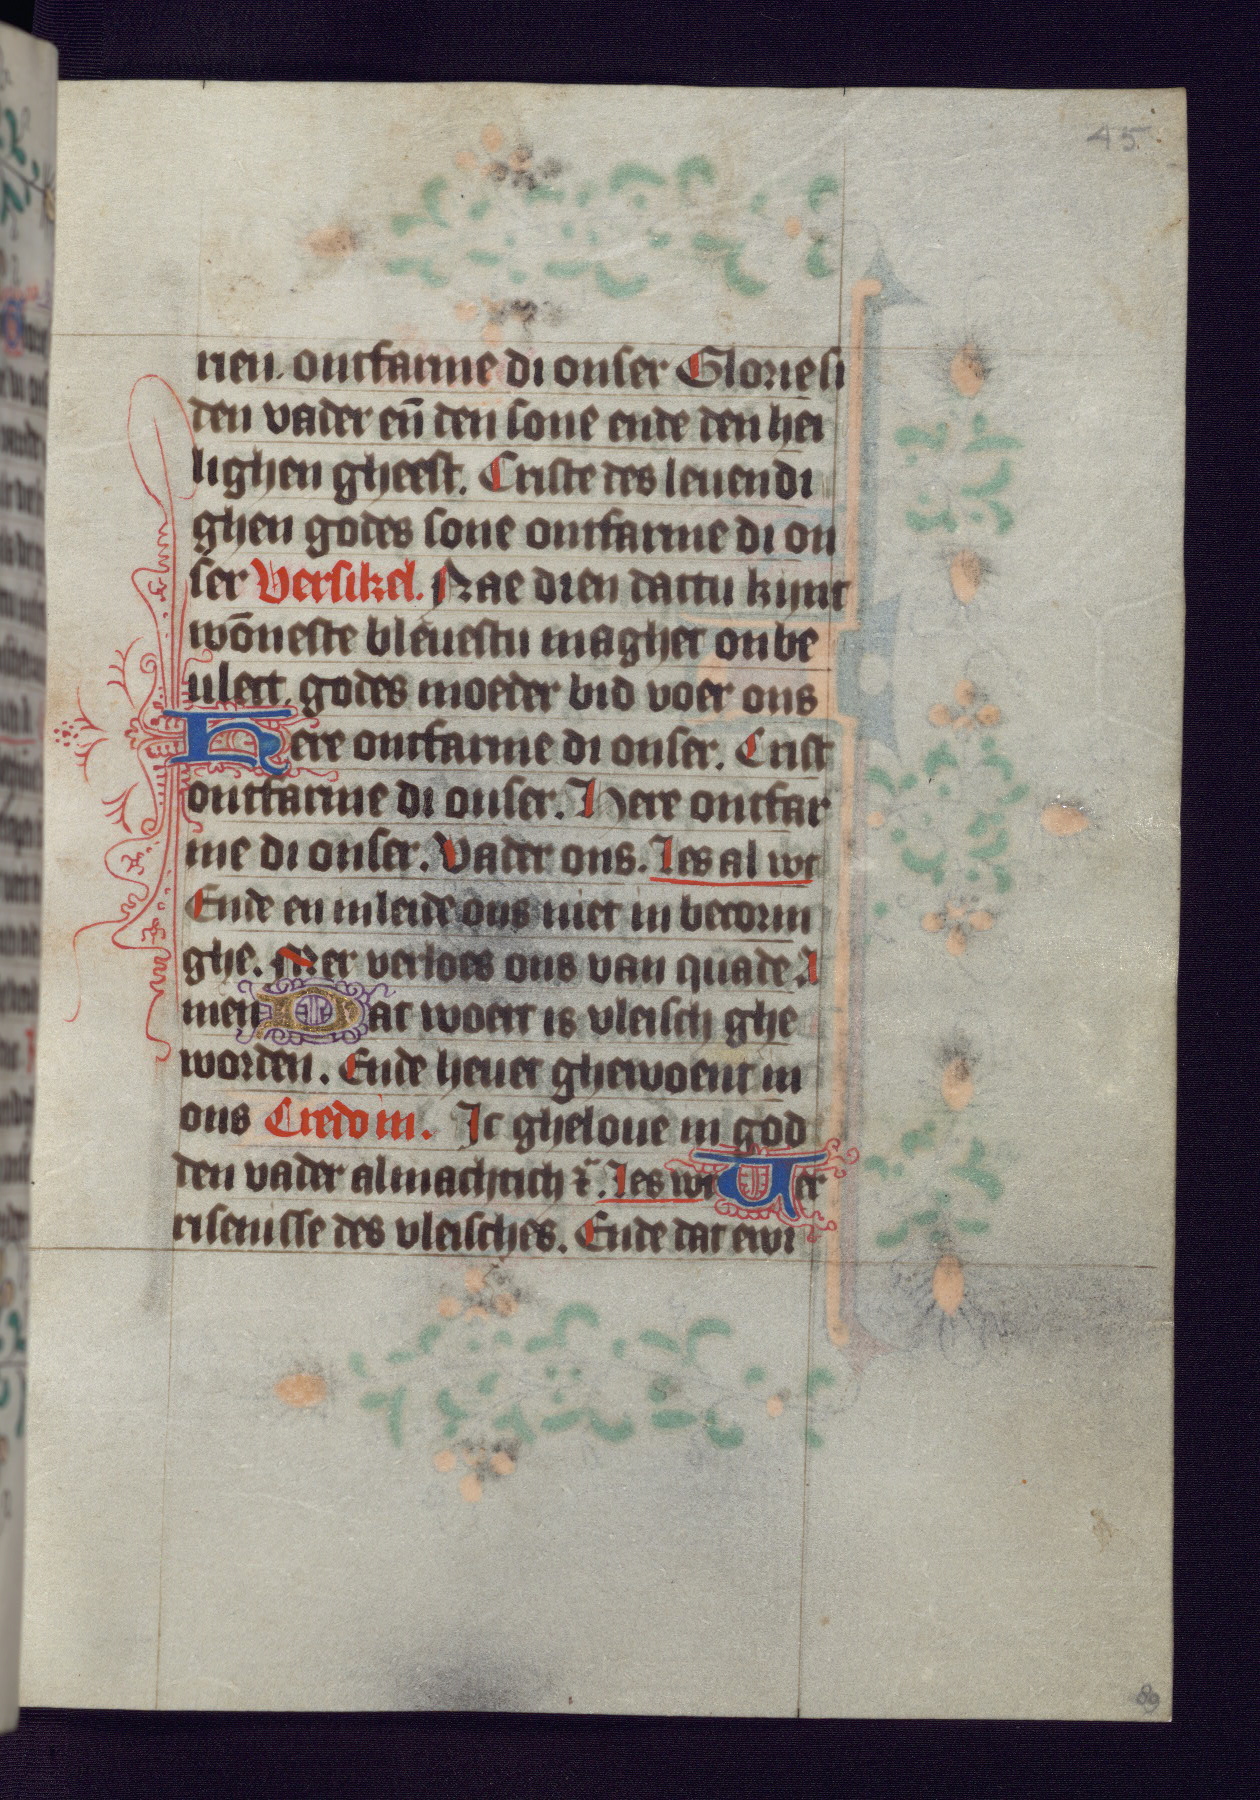 45
nen. ontfarme di onser Glorie si
den vader en̄ den sone ende den hei
lighen gheest. Criste des leuendi
ghen godes sone ontfarme di on
ser Versikel. Nae dien dattu kijnt
wōneste bleuestu maghet onbe
ulect. godes moeder bid voer ons
Here ontfarme di onser. Crist
ontfarme di onser. Here ontfar
me di onser. Vader ons. Les al wt
Ende en inleide ons niet in becorin
ghe. Mer verloes ons van quade. A
men Dat woert is vleisch ghe
worden. Ende heuet ghewoent in
ons Credo in. Ic gheloue in god
den vader almachtich ⁊̄. Les wt Ver
risenisse des vleisches. Ende dat ewi
89